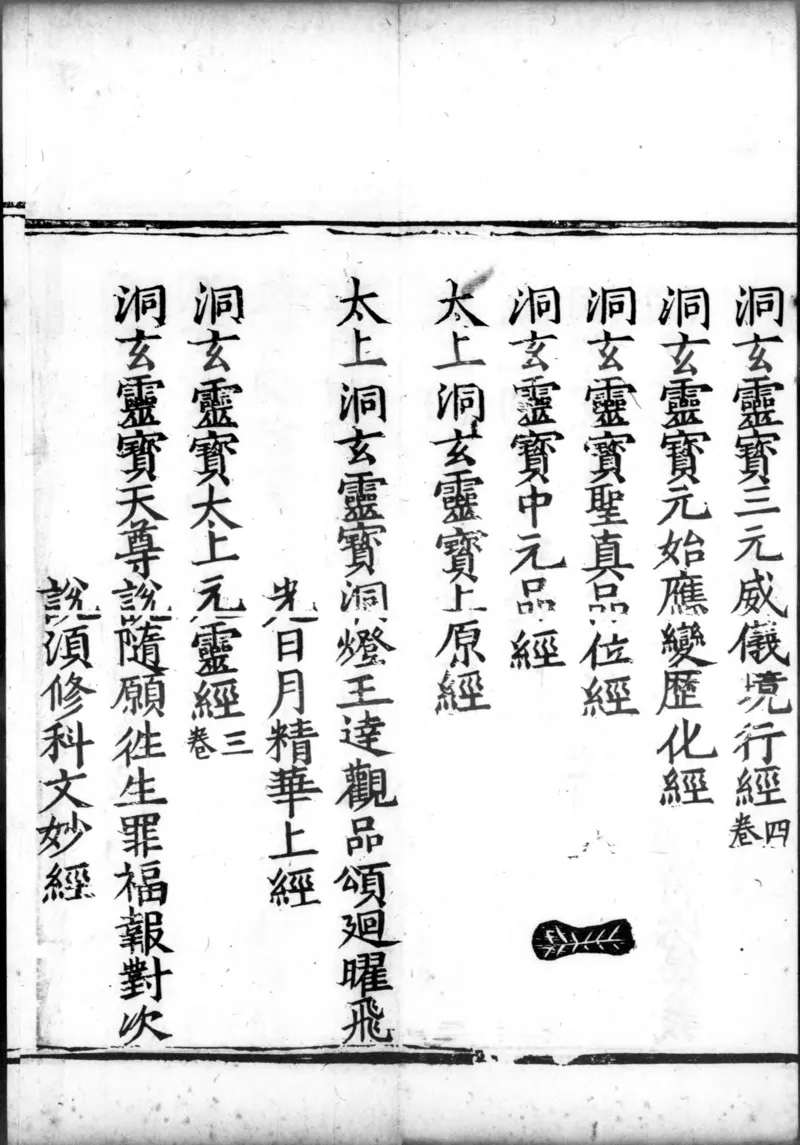 洞玄靈寶三元威儀境行經四卷
洞玄靈寶元始應變歷化經
洞玄靈寶聖真品位經
洞玄靈寶中元品經
太上洞玄靈寶上原經
太上洞玄靈寶洞燈王達觀品頌廻曜飛
光日月精華上經
洞玄靈寶太上元靈經三卷
洞玄靈寶天尊說隨願徃生罪福報對次
說湏修科文妙經